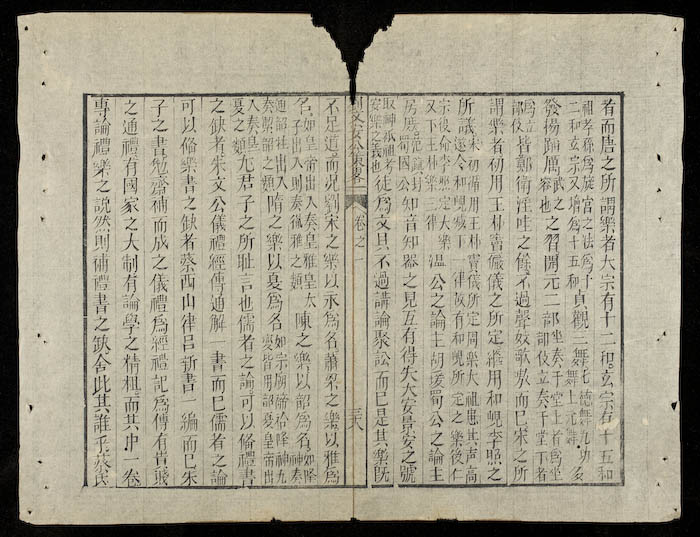 者而唐之所謂樂者大宗有十二和玄宗有十五和
祖孝孫爲旋宮之法爲十二和玄宗又增爲十五和貞觀三舞七德舞九功舞上元舞及
發揚蹈厲武之容也之習開元二部坐奏于堂上者爲坐部伎立奏于堂下者
爲立部伎皆鄭衛淫哇之儔不過聲妓歌嗷而已宋之所
謂樂者初用王朴竇儼儀之所定將用和峴李照之
所議宋初備用王朴竇儼儀所定周樂大祖患其声高遂令和峴減下一律故有和峴所定之樂後仁
宗後命李照定大樂又下王朴樂三律溫公之論主胡瑗蜀公之論主
房庶范鎮封蜀國公知音知器之見互有得失大安景安之號
取神祇祖考安樂之義也徒爲文具不過講論聚訟而已是其樂既
劉文安公策畧 卷之一
不足道而況劉宋之樂以永爲名蕭梁之樂以雅爲
名如皇帝出入奏皇雅皇太子出入則奏後雅之類陳之樂以韶爲名如降神奏
通韶牲出入奏㓗韶之類隋之樂以夏爲名如宗廟禘祫降神九變皆用韶夏皇帝出
入奏皇夏之類凡君子之所耻言也儒者之論可以俗禮書
之缺者朱文公儀禮經傳通解一書而已儒者之論
可以俗樂書之缺者蔡西山律呂新書一編而已朱
子之書勉齋補而成之儀禮爲經禮記爲傳有
之通禮有國家之大制有論學之精粗而其中一卷
專論禮樂之說然則補禮書之缺舍此其誰乎蔡氏